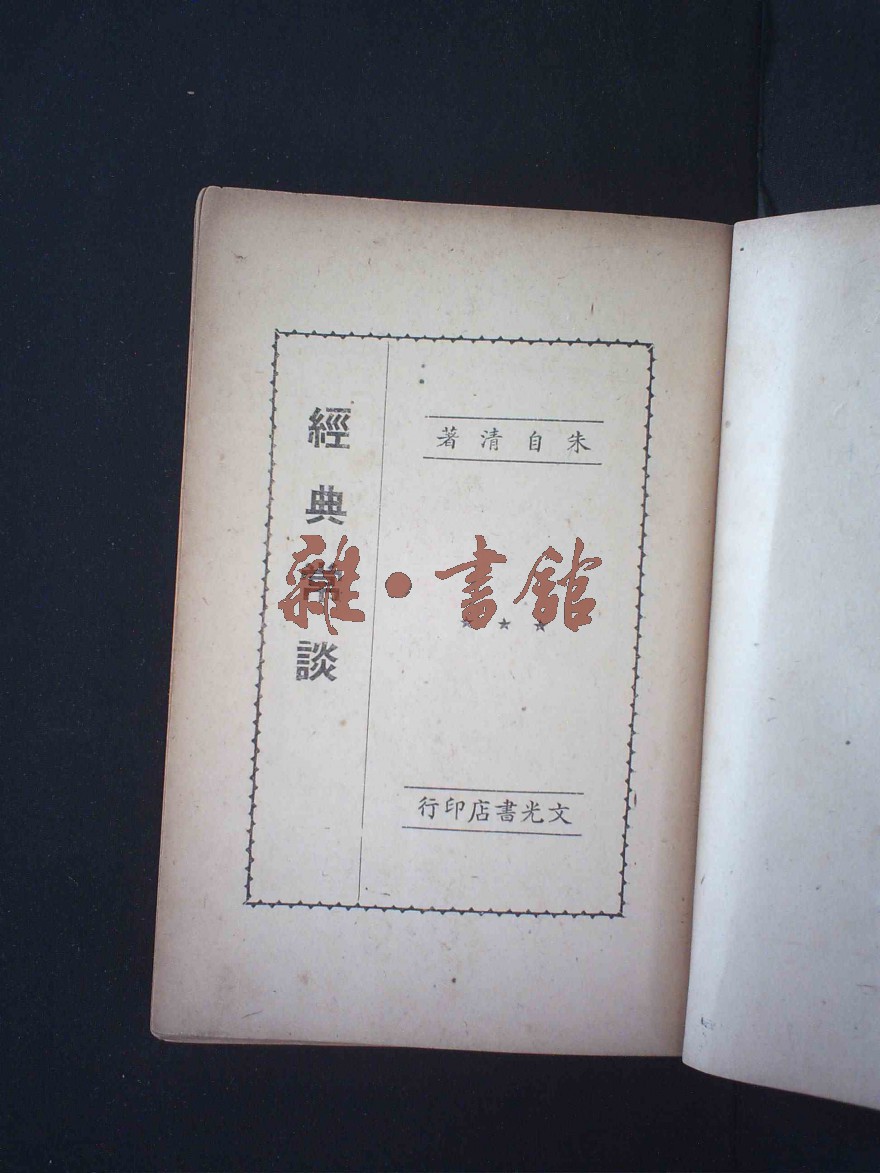 經典常談
朱自清著
雜·書館
文光書店印行